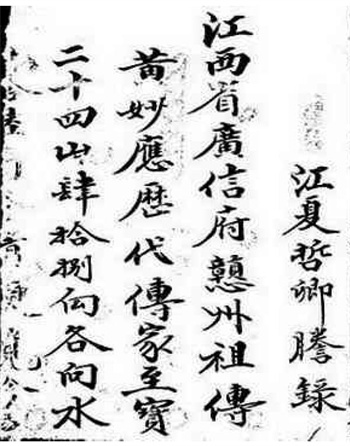 江夏哲卿謄錄
江西省廣信府戇州祖傳
黃妙應歷代傳家至寶
二十四山肆拾捌局各向水